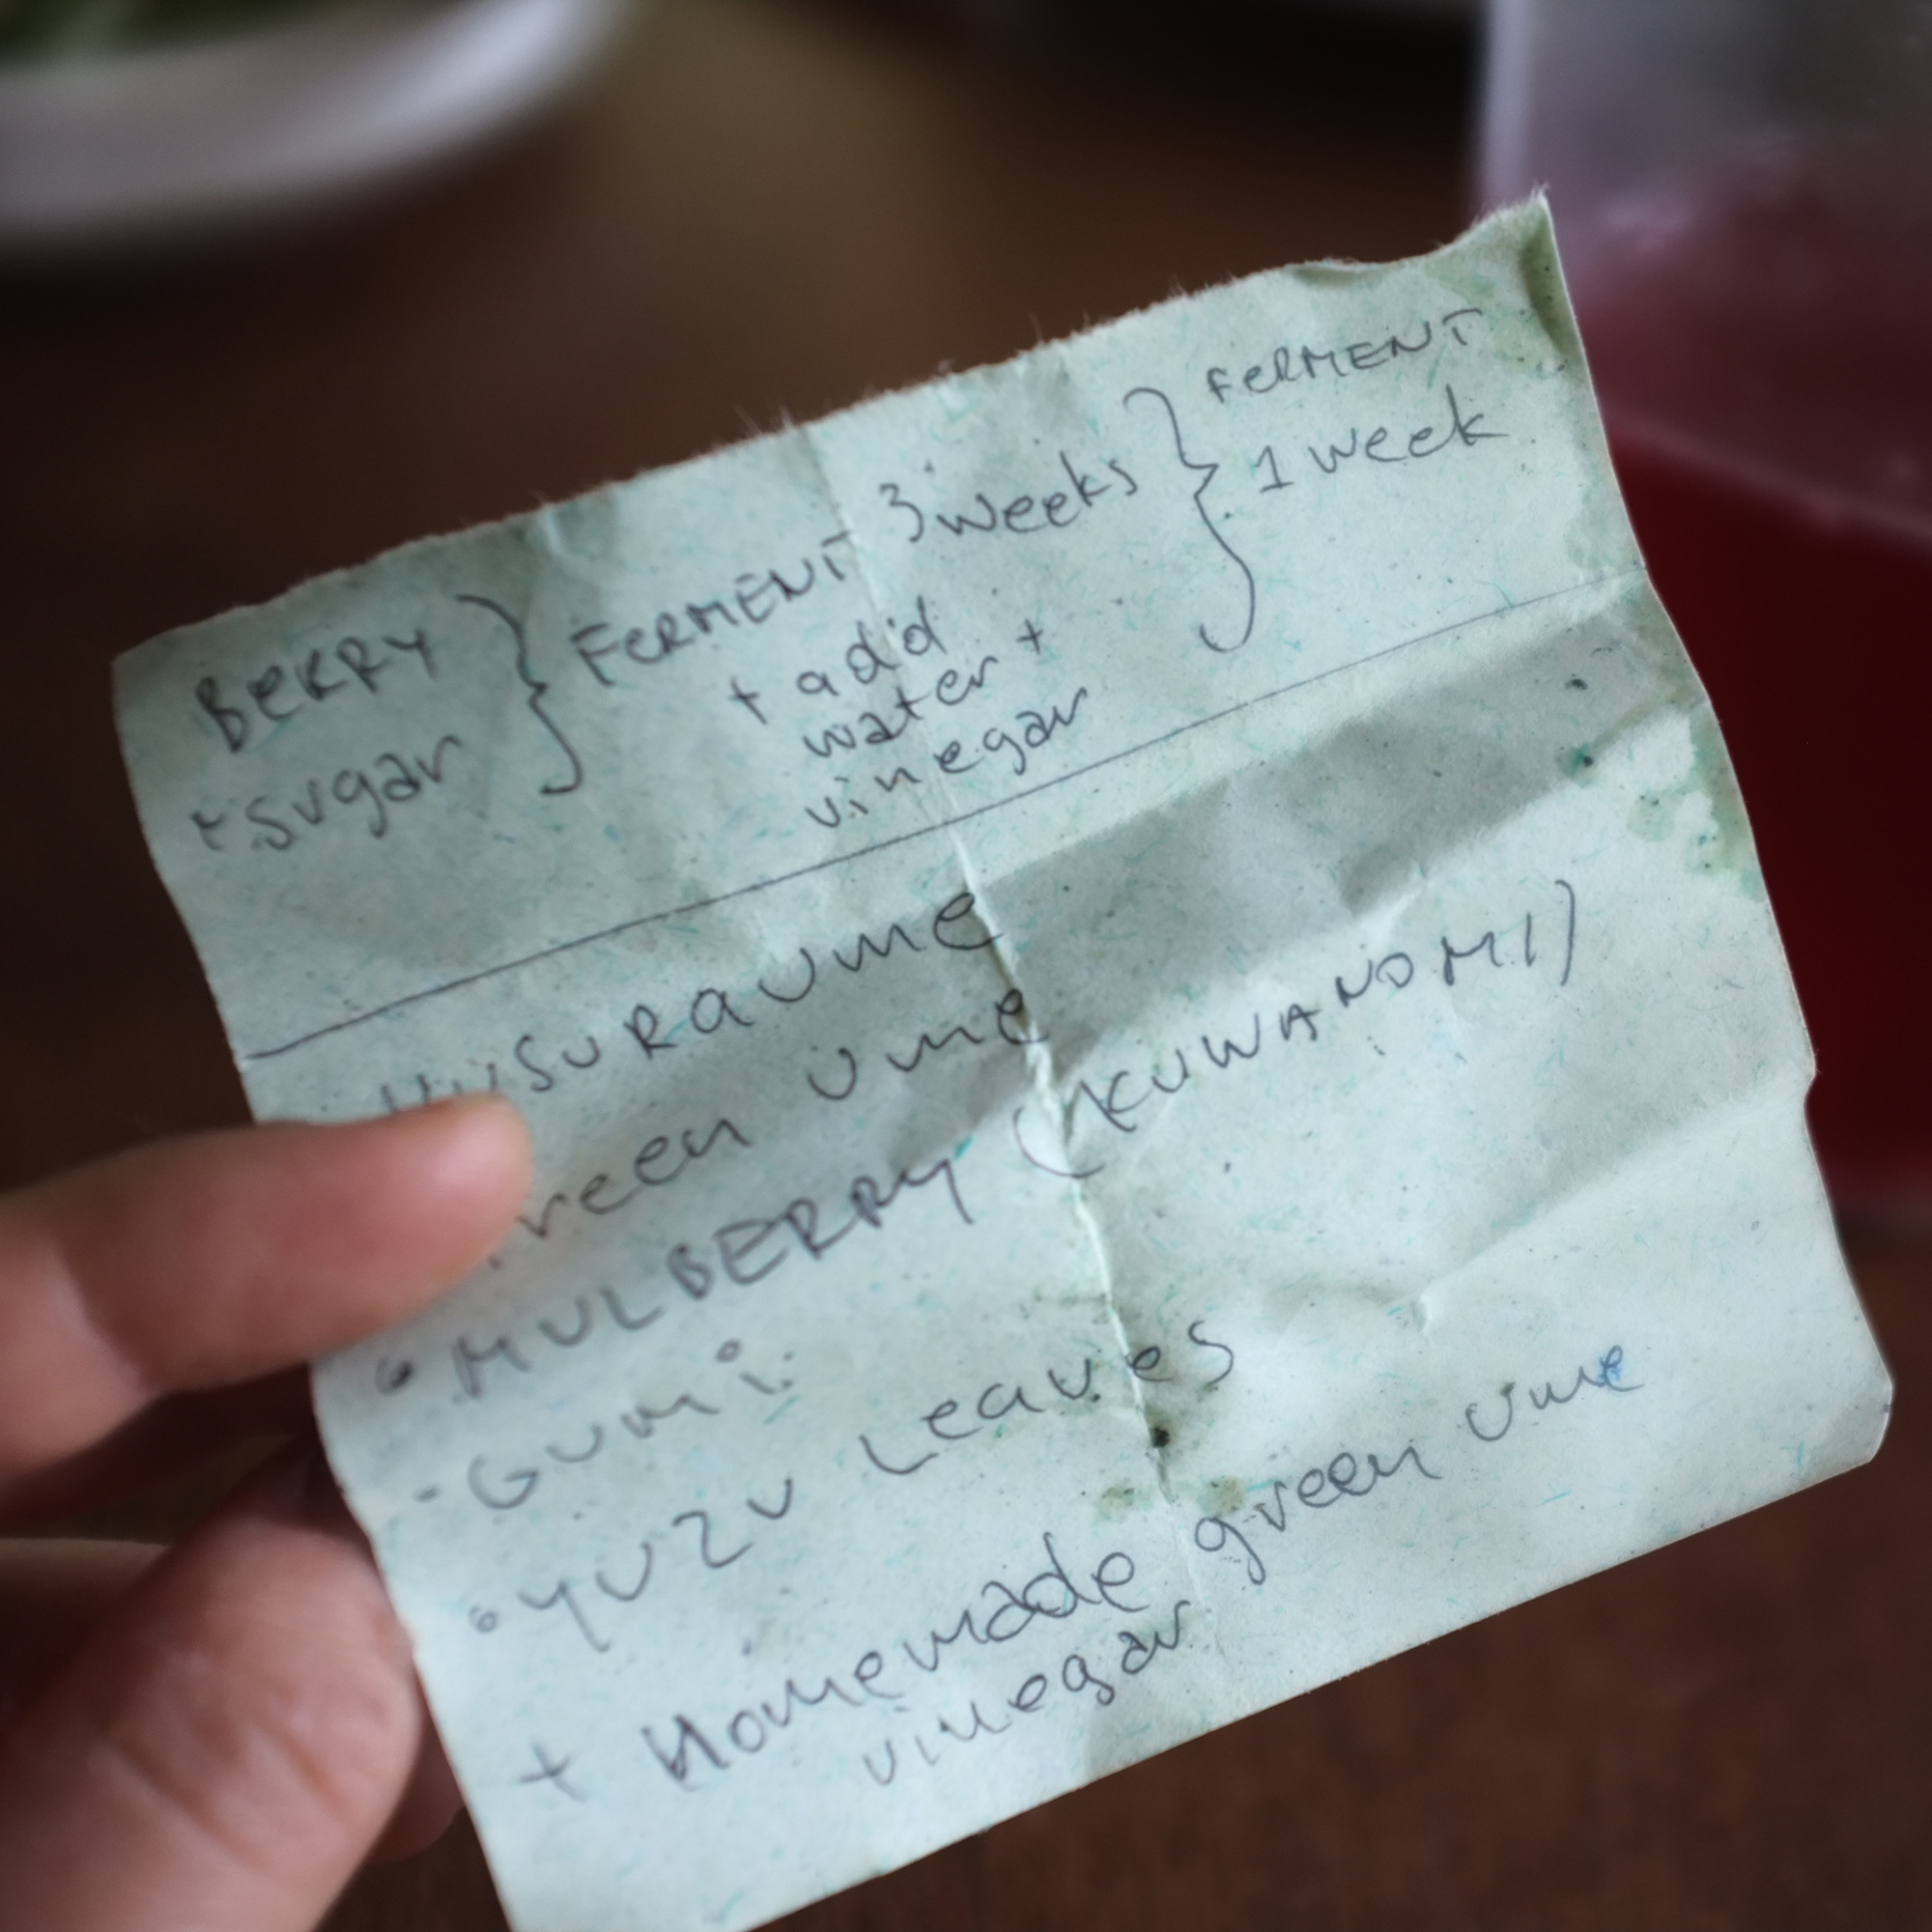 BERRY } FERMENT 3 weeks } FERMENT
+ sugar + add 1 week
water +
vinegar
ume
• MULBERRY (KUWANOMI)
- GUMI
• YUZU Leaves
+ Homemade green ume
vinegar